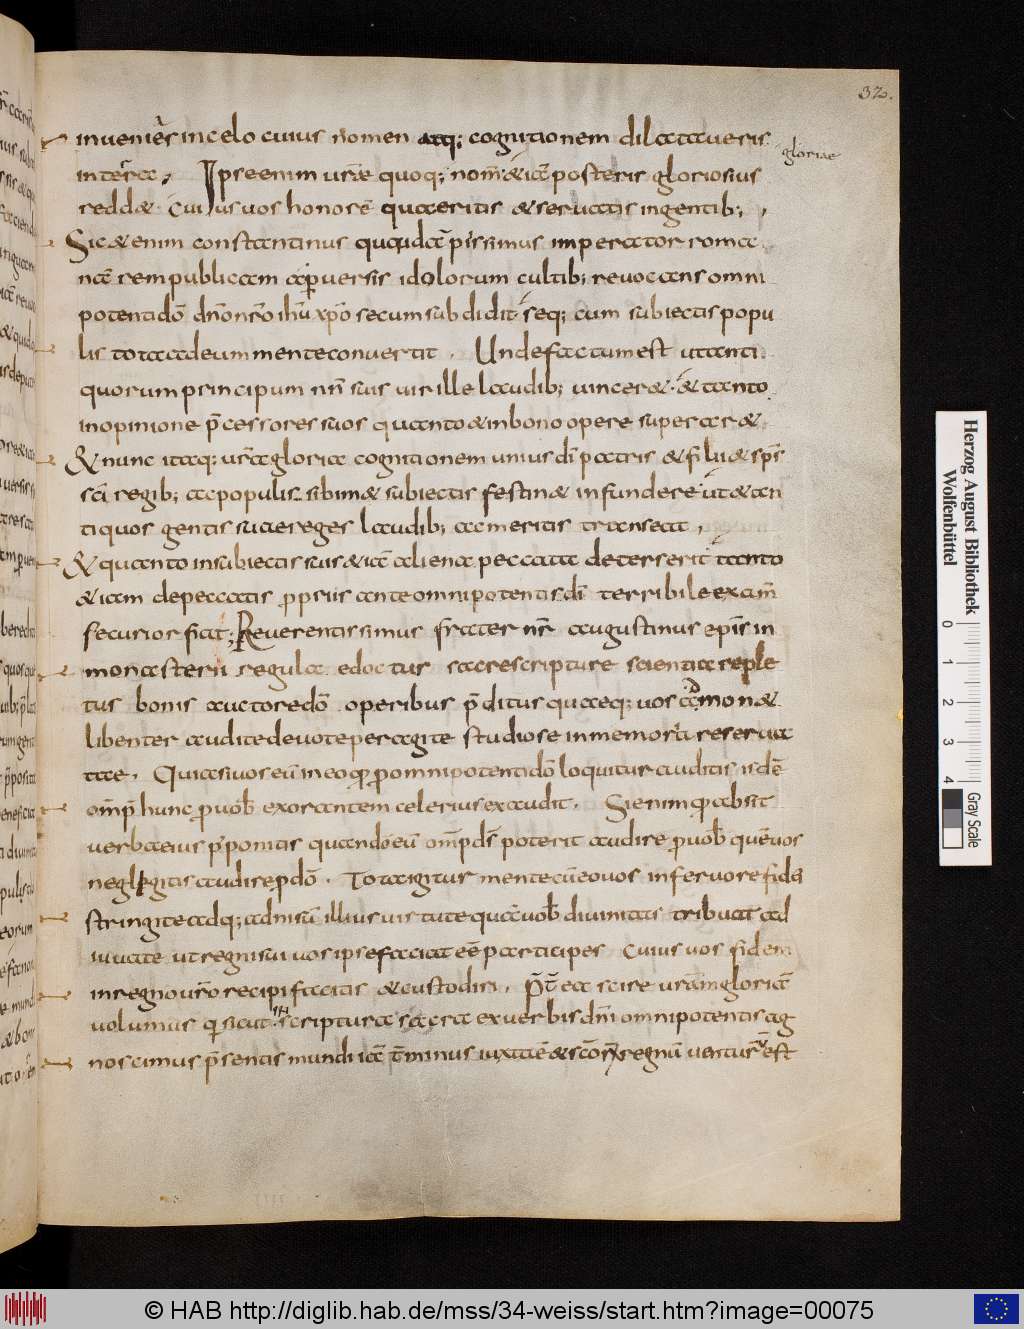 32.
inveniet̄s in celo cuius nomen atq; cognitionem dilataveris
gloriae
in terra, Ipse enim vr̄ae quoq; nom̄ & iā posteris gloriosius
redd& cuius vos honorē quaeritis & servatis in gentib;,
Sic &enim constantinus quidā piissimus imperator roma
nā rempublicam a pversis idolorum cultib; revocans omni
potenti dō dn̄o nr̄o ihū xp̄o secum subdidit seq; cum subiectis popu
lis tota ad eum mente convertit. Unde factum est ut anti
quorum principum nn̄ suis vir ille laudib; vincer&. & tanto
in opinione p̄cessores suos quanto & in bono opere superar&
& nunc itaq; vr̄a gloria cognitionem unius dī patris & filii & sps̄
sc̄i regib; ac populis sibim& subiectis festin& infundere ut & an
tiquos gentis suae reges laudib; ac meritis transeat,
& quanto in subiectis suis & iā aliena peccata deterserit tanto
& iam de peccatis ppriis ante omnipotentis dī terribile exam̄
securior fiat; Reverentissimus frater nr̄ augustinus ep̄is in
monasterii regula edoctus sacre scripture scientia reple
tus bonis auctore dō operibus p̄ditus quaeq; vos āmon&
libenter audite devote peragite studiose in memoria reserva
tae. Quia si vos eū in eo qđ p omnipotenti dō loquitur auditis isdē
om̄ps hunc p vob̄ exorantem celerius exaudit. Si enim qđ absit
verba eius p'ponitis quando eū om̄ps ds̄ poterit audire p vob̄ quē vos
neglegitis audire p dō. Tota igitur mente cū eo vos in fervore fidei
stringite adq; adnisū illius virtute quā vob̄ divinitas tribuat ad
iuvate ut regni sui vos ipse faciat eē participes cuius vos fidem
in regno vr̄o recipi facitis & custodiri. Pr̄ea scire vr̄am gloriā
volumus q sicut in scriptura sacra ex verbis dn̄i omnipotentis ag
noscimus p̄sentis mundi iā t̄minus iuxta ē & sc̄orū regnū venturū est
Herzog August Bibliothek
Wolfenbüttel
0 1 2 3 4
Gray Scale
© HAB http://diglib.hab.de/mss/34-weiss/start.htm?image=00075